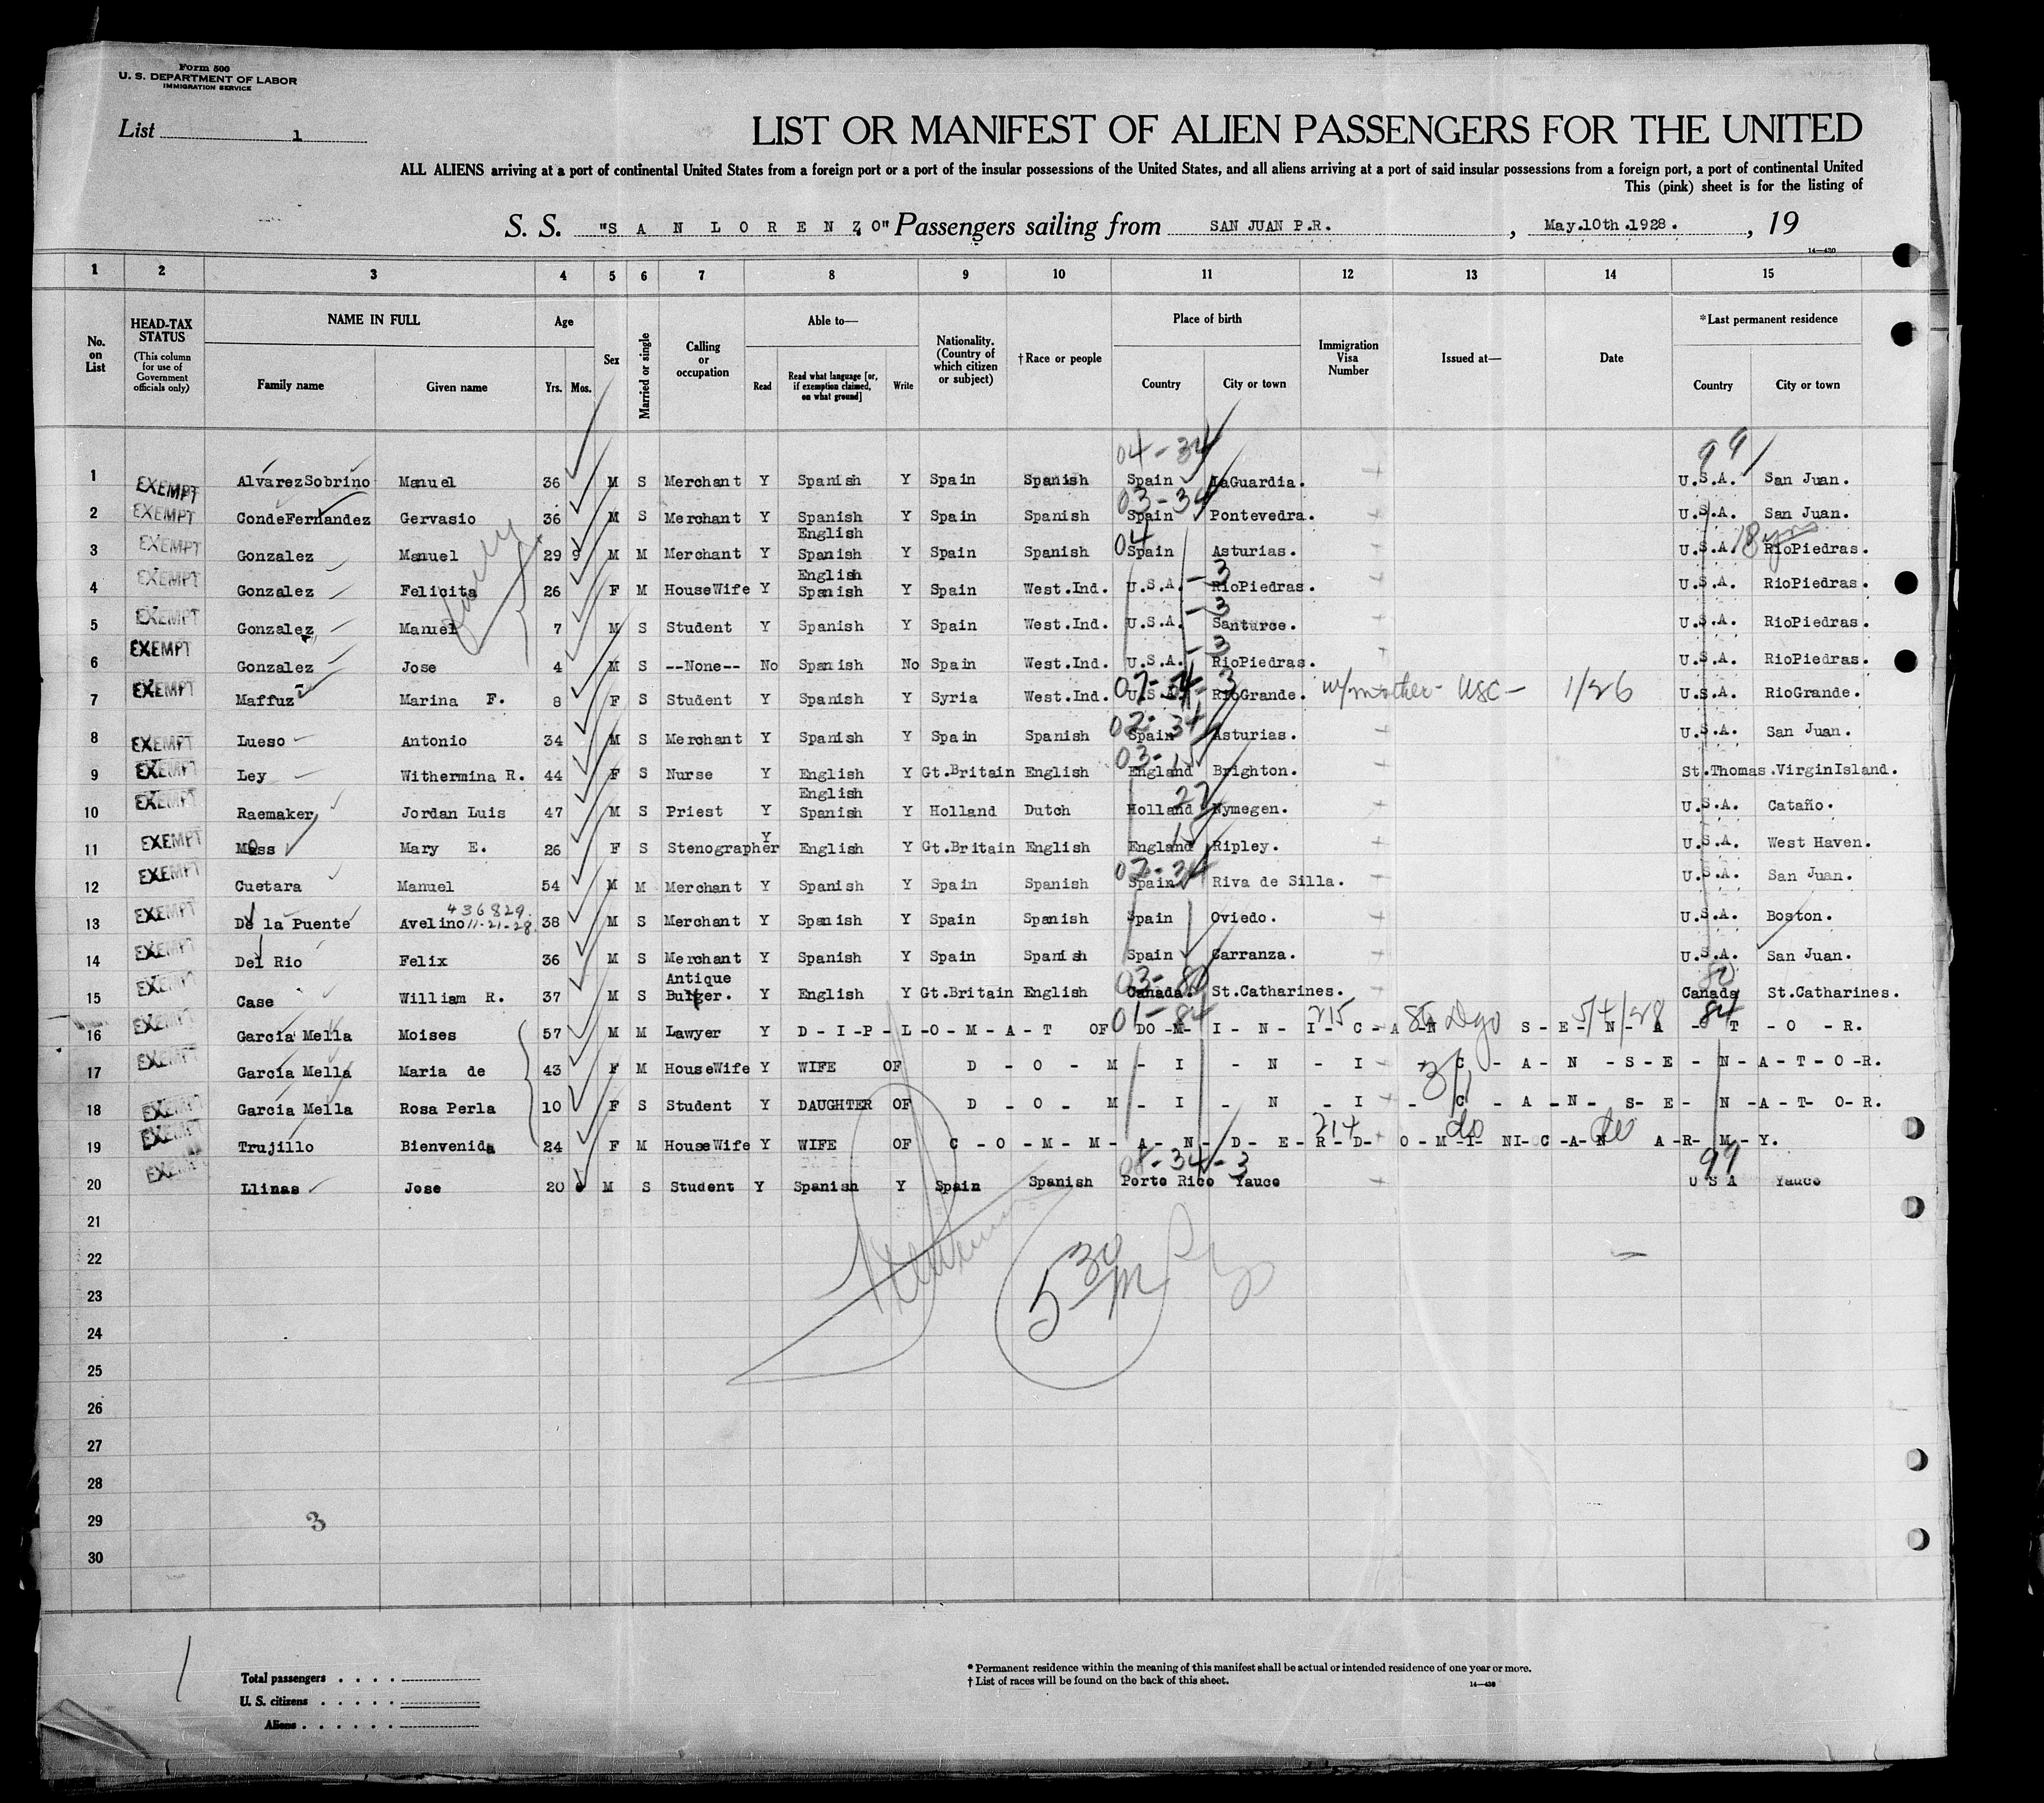 Form 500
U. S. DEPARTMENT OF LABOR
IMMIGRATION SERVICE
List 1
LIST OR MANIFEST OF ALIEN PASSENGERS FOR THE UNITED
ALL ALIENS arriving at a port of continental United States from a foreign port or a port of the insular possessions of the United States, and all aliens arriving at a port of said insular possessions from a foreign port, a port of continental United
This (pink) sheet is for the listing of
S. S. "S A N L O R E N Z O" Passengers sailing from SAN JUAN P.R. , May.10th.1928. , 19
14—430
1 2 3 4 5 6 7 8 9 10 11 12 13 14 15
No. on List
HEAD-TAX STATUS (This column for use of Government officials only)
NAME IN FULL
Family name Given name
Age
Yrs. Mos.
Sex
Married or single
Calling or occupation
Able to—
Read Read what language [or, if exemption claimed, on what ground] Write
Nationality. (Country of which citizen or subject)
†Race or people
Place of birth
Country City or town
Immigration Visa Number
Issued at—
Date
*Last permanent residence
Country City or town
04-34 99
1 EXEMPT AlvarezSobrino Manuel 36 M S Merchant Y Spanish Y Spain Spanish Spain LaGuardia. U.S.A. San Juan.
03-34
2 EXEMPT CondeFernandez Gervasio 36 M S Merchant Y Spanish Y Spain Spanish Spain Pontevedra. U.S.A. San Juan.
English
3 EXEMPT Gonzalez Manuel 29 9 M M Merchant Y Spanish Y Spain Spanish 04 Spain Asturias. U.S.A. RioPiedras.
English
4 EXEMPT Gonzalez Felicita 26 F M HouseWife Y Spanish Y Spain West.Ind. U.S.A. -3 RioPiedras. U.S.A. RioPiedras.
5 EXEMPT Gonzalez Manuel 7 M S Student Y Spanish Y Spain West.Ind. U.S.A. -3 Santurce. U.S.A. RioPiedras.
6 EXEMPT Gonzalez Jose 4 M S --None-- No Spanish No Spain West.Ind. U.S.A. -3 RioPiedras. U.S.A. RioPiedras.
7 EXEMPT Maffuz Marina F. 8 F S Student Y Spanish Y Syria West.Ind. U.S.A. -3 RioGrande. w/mother - USC - 1/26 U.S.A. RioGrande.
02-34
8 EXEMPT Lueso Antonio 34 M S Merchant Y Spanish Y Spain Spanish Spain Asturias. U.S.A. San Juan.
03-15
9 EXEMPT Ley Withermina R. 44 F S Nurse Y English Y Gt.Britain English England Brighton. St.Thomas.VirginIsland.
English
10 EXEMPT Raemaker Jordan Luis 47 M S Priest Y Spanish Y Holland Dutch Holland 27 Nymegen. U.S.A. Cataño.
11 EXEMPT Moss Mary E. 26 F S Stenographer Y English Y Gt.Britain English England 15 Ripley. U.S.A. West Haven.
02-34
12 EXEMPT Cuetara Manuel 54 M M Merchant Y Spanish Y Spain Spanish Spain Riva de Silla. U.S.A. San Juan.
436829
13 EXEMPT De la Puente Avelino 11-21-28 38 M S Merchant Y Spanish Y Spain Spanish Spain Oviedo. U.S.A. Boston.
14 EXEMPT Del Rio Felix 36 M S Merchant Y Spanish Y Spain Spanish Spain Carranza. U.S.A. San Juan.
Antique 03-80 80
15 EXEMPT Case William R. 37 M S Y English Y Gt.Britain English Canada. St.Catharines. Canada St.Catharines.
01-84 215 5/4/28 84
16 EXEMPT Garcia Mella Moises 57 M M Lawyer Y D-I-P-L-O-M-A-T OF DO-M-I-N-I-C-A-N S-E-N-A-T-O-R.
17 EXEMPT Garcia Mella Maria de 43 F M HouseWife Y WIFE OF D-O-M-I-N-I-C-A-N-S-E-N-A-T-O-R.
18 EXEMPT Garcia Mella Rosa Perla 10 F S Student Y DAUGHTER OF D-O-M-I-N-I-C-A-N-S-E-N-A-T-O-R.
214 do do
19 EXEMPT Trujillo Bienvenida 24 F M HouseWife Y WIFE OF C-O-M-M-A-N-D-E-R-D-O-M-I-NI-C-A-N A-R-M-Y.
08-34-3 99
20 EXEMPT Llinas Jose 20 M S Student Y Spanish Y Spain Spanish Porto Rico Yauco U S A Yauco
21
22
5 30
23
24
25
26
27
28
29 3
30
Total passengers
U. S. citizens
Aliens
* Permanent residence within the meaning of this manifest shall be actual or intended residence of one year or more.
† List of races will be found on the back of this sheet.
14—430